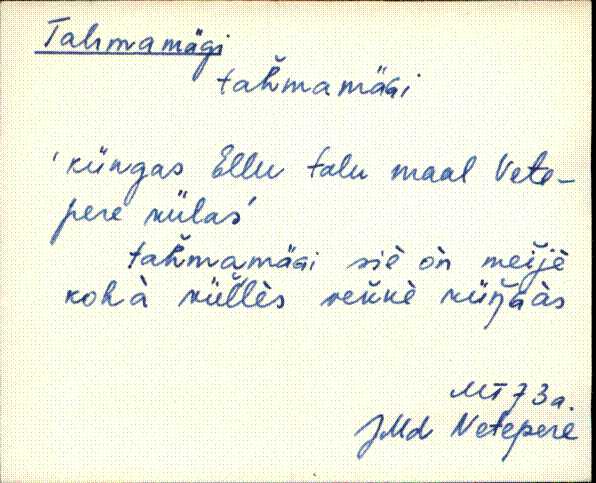 Tahmamägi
tah̆mamäGi
'küngas Ellu talu maal Vete-
pere külas'
tah̆mamäGi siè òn meĭjè
kohà küĭlès vekkè küŋGàs
MT 73a.
JMd Vetepere